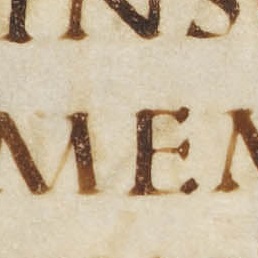 INS
MEM